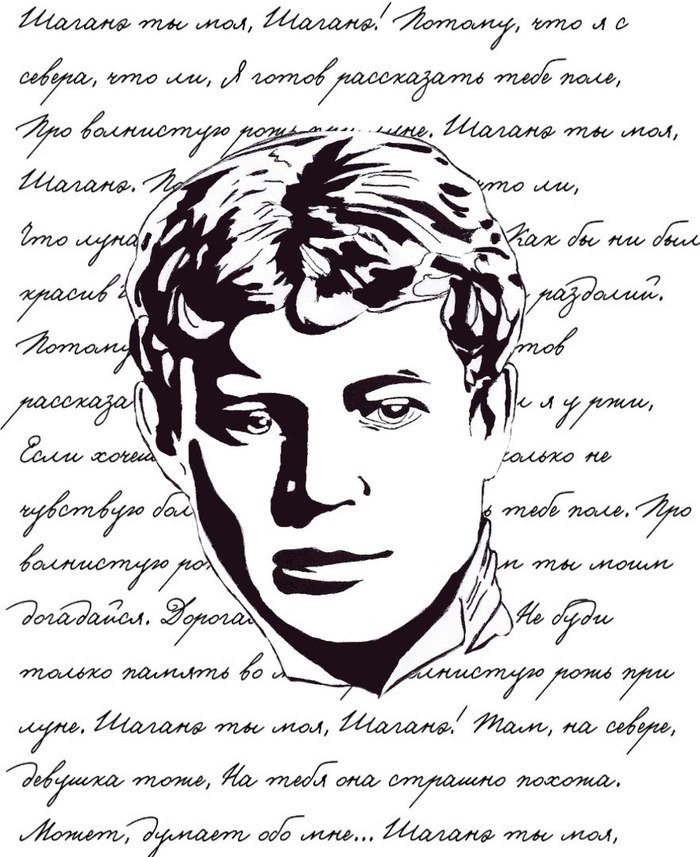 Шаганэ ты моя, Шаганэ! Потому, что я с
севера, что ли, Я готов рассказать тебе поле,
Про волнистую рожь при луне. Шаганэ ты моя,
Шаганэ. По что ли,
Что луна Как бы ни был
красив раздолий.
Потому тов
рассказа я у ржи,
Если хочеш олько не
чувствую бол тебе поле. Про
волнистую ро ты моим
догадайся. Дорогая Не буди
только память во лнистую рожь при
луне. Шаганэ ты моя, Шаганэ! Там, на севере,
девушка тоже, На тебя она страшно похожа.
Может, думает обо мне... Шаганэ ты моя,